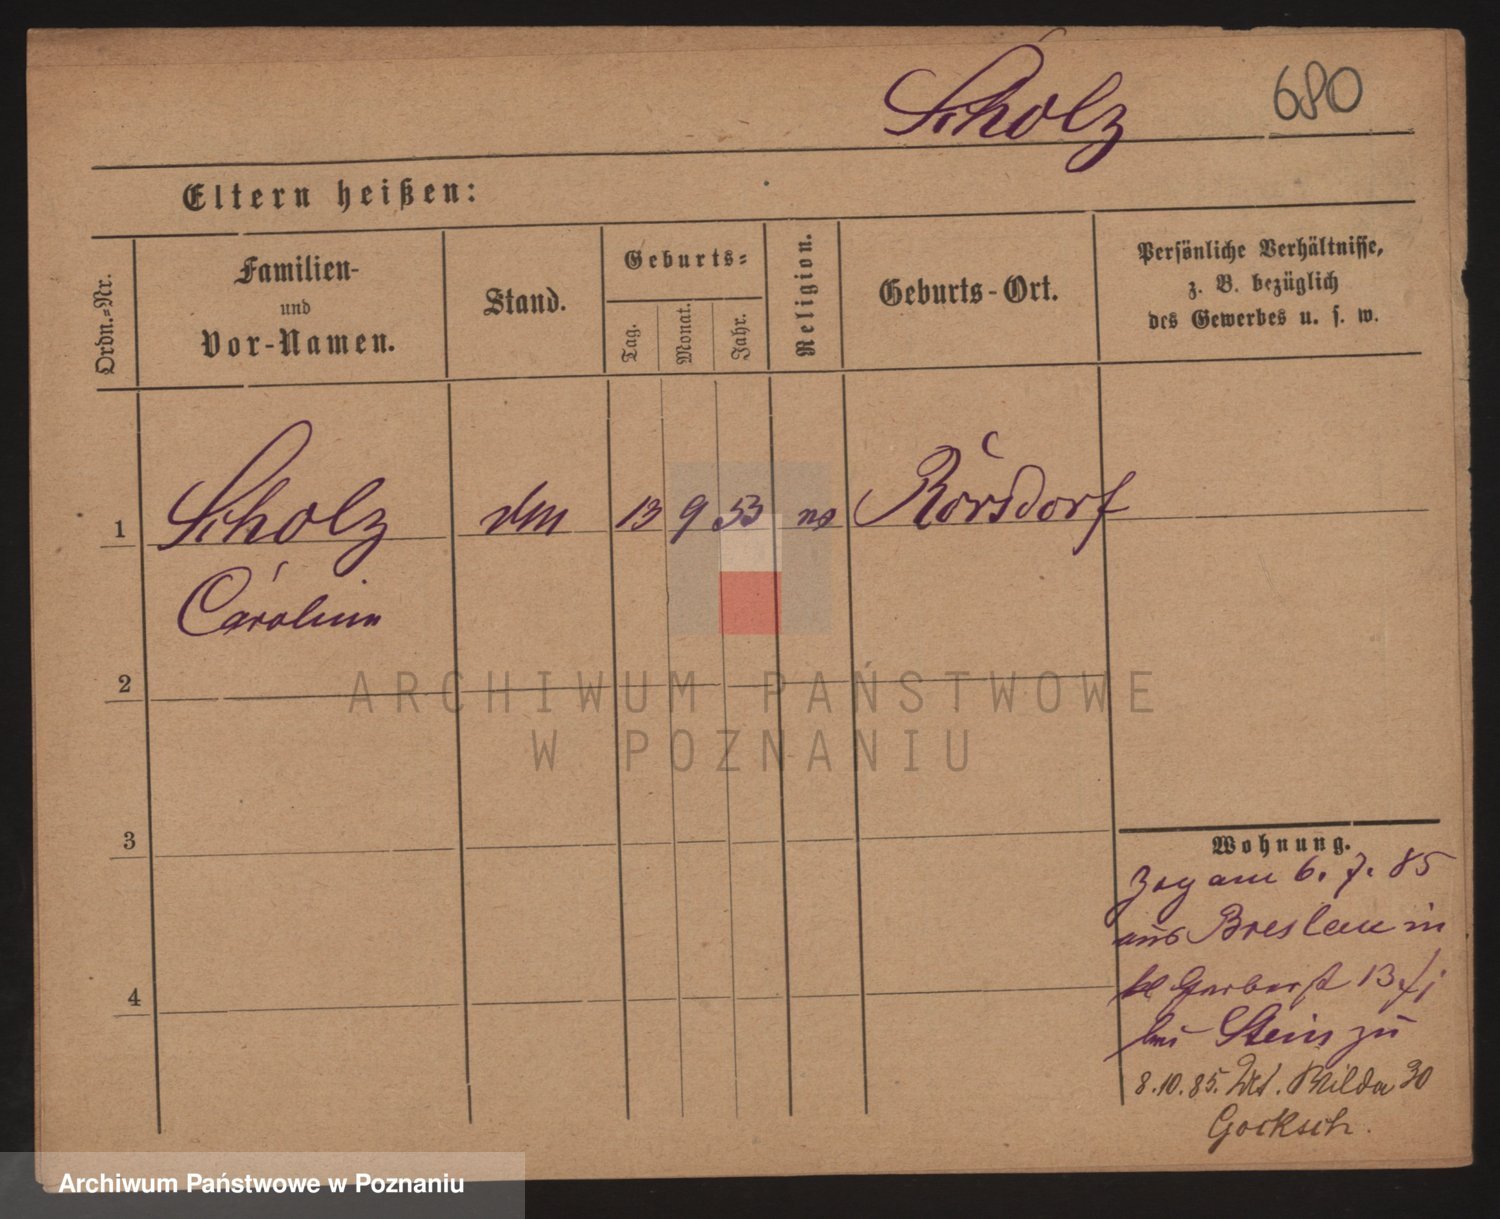 Scholz 680
Eltern heißen:
Ordn.=Nr.
Familien-
und
Vor-Namen.
Stand.
Geburts=
Tag.
Monat.
Jahr.
Religion.
Geburts-Ort.
Persönliche Verhältnisse,
z. B. bezüglich
des Gewerbes u. s. w.
1 Scholz 13 9 53 Rörsdorf
Carolina
2
3
4
Wohnung.
Zog am 6. 7. 85
aus Breslau in
kl Gerberst 13
bei Stein zu
8.10.85. Wilda 30
Gocksch.
ARCHIWUM PAŃSTWOWE
W POZNANIU
Archiwum Państwowe w Poznaniu